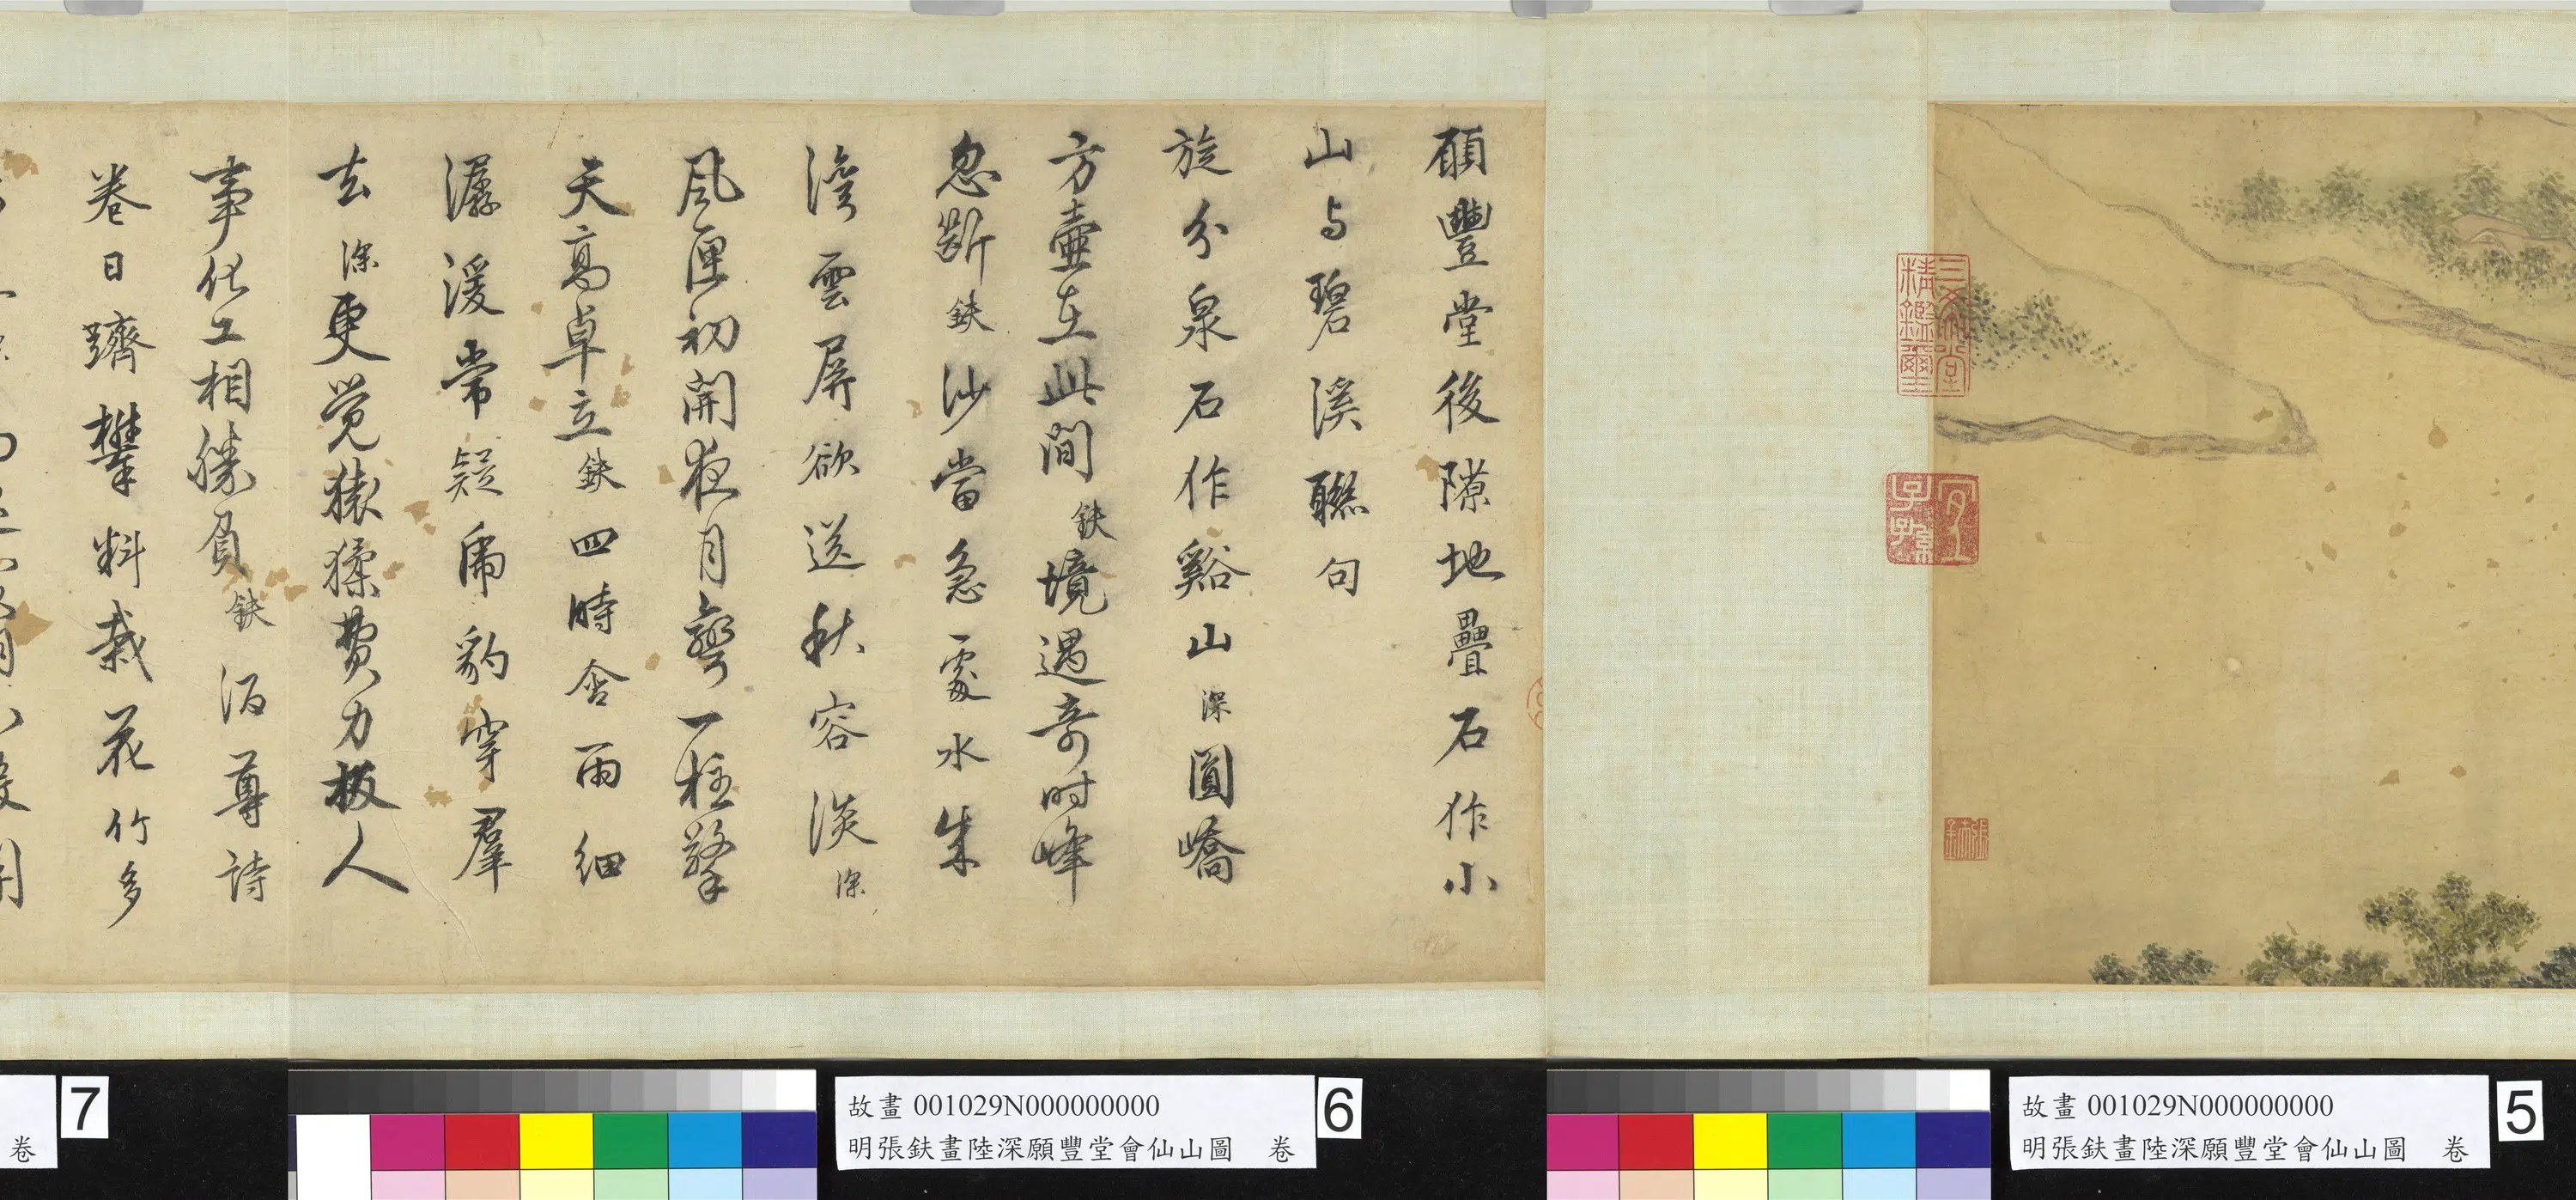 願豐堂後隙地疊石作小
山与碧溪聯句
旋分泉石作谿山深圓嶠
方壷在此間鈇境遇奇时峰
忽斷鈇沙當急處水朱
灣雲屏欲送秋容淡深
風匣初開夜月彎一柱擎
天高卓立鈇四時含雨細
潺湲常疑虎豹穿羣
去深更覚猿猱費力扳人
事化工相勝負鈇酒尊詩
卷日躋攀料栽花竹多
三希堂
精鑑璽
宜
子孫
張鈇
故畫 001029N000000000
明張鈇畫陸深願豐堂會仙山圖 卷
6
故畫 001029N000000000
明張鈇畫陸深願豐堂會仙山圖 卷
5
卷
7